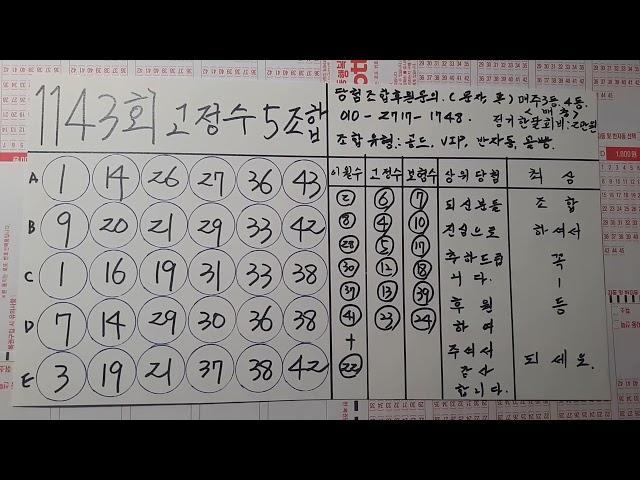 1143회 고정수 5조합
당첨조합후원문의. (문자, 톡) 매주 3등, 4등.
010-2717-1748.
정기한달회비: 2만원
조합 유형: 골드, VIP, 반자동,
A 1 14 26 27 36 43
B 9 20 21 29 33 42
C 1 16 19 31 33 38
D 7 14 29 30 36 38
E 3 19 21 37 38 42
이월수 고정수 보험수 상위당첨 최심
2 6 7 되신분들 조합
8 4 10 진심으로 하셔서
28 5 17 축하드립 꼭
30 12 18 니다. 1
37 13 39 후원 등
41 23 24 하여
+ 주셔서 되세요.
22 감사
합니다.